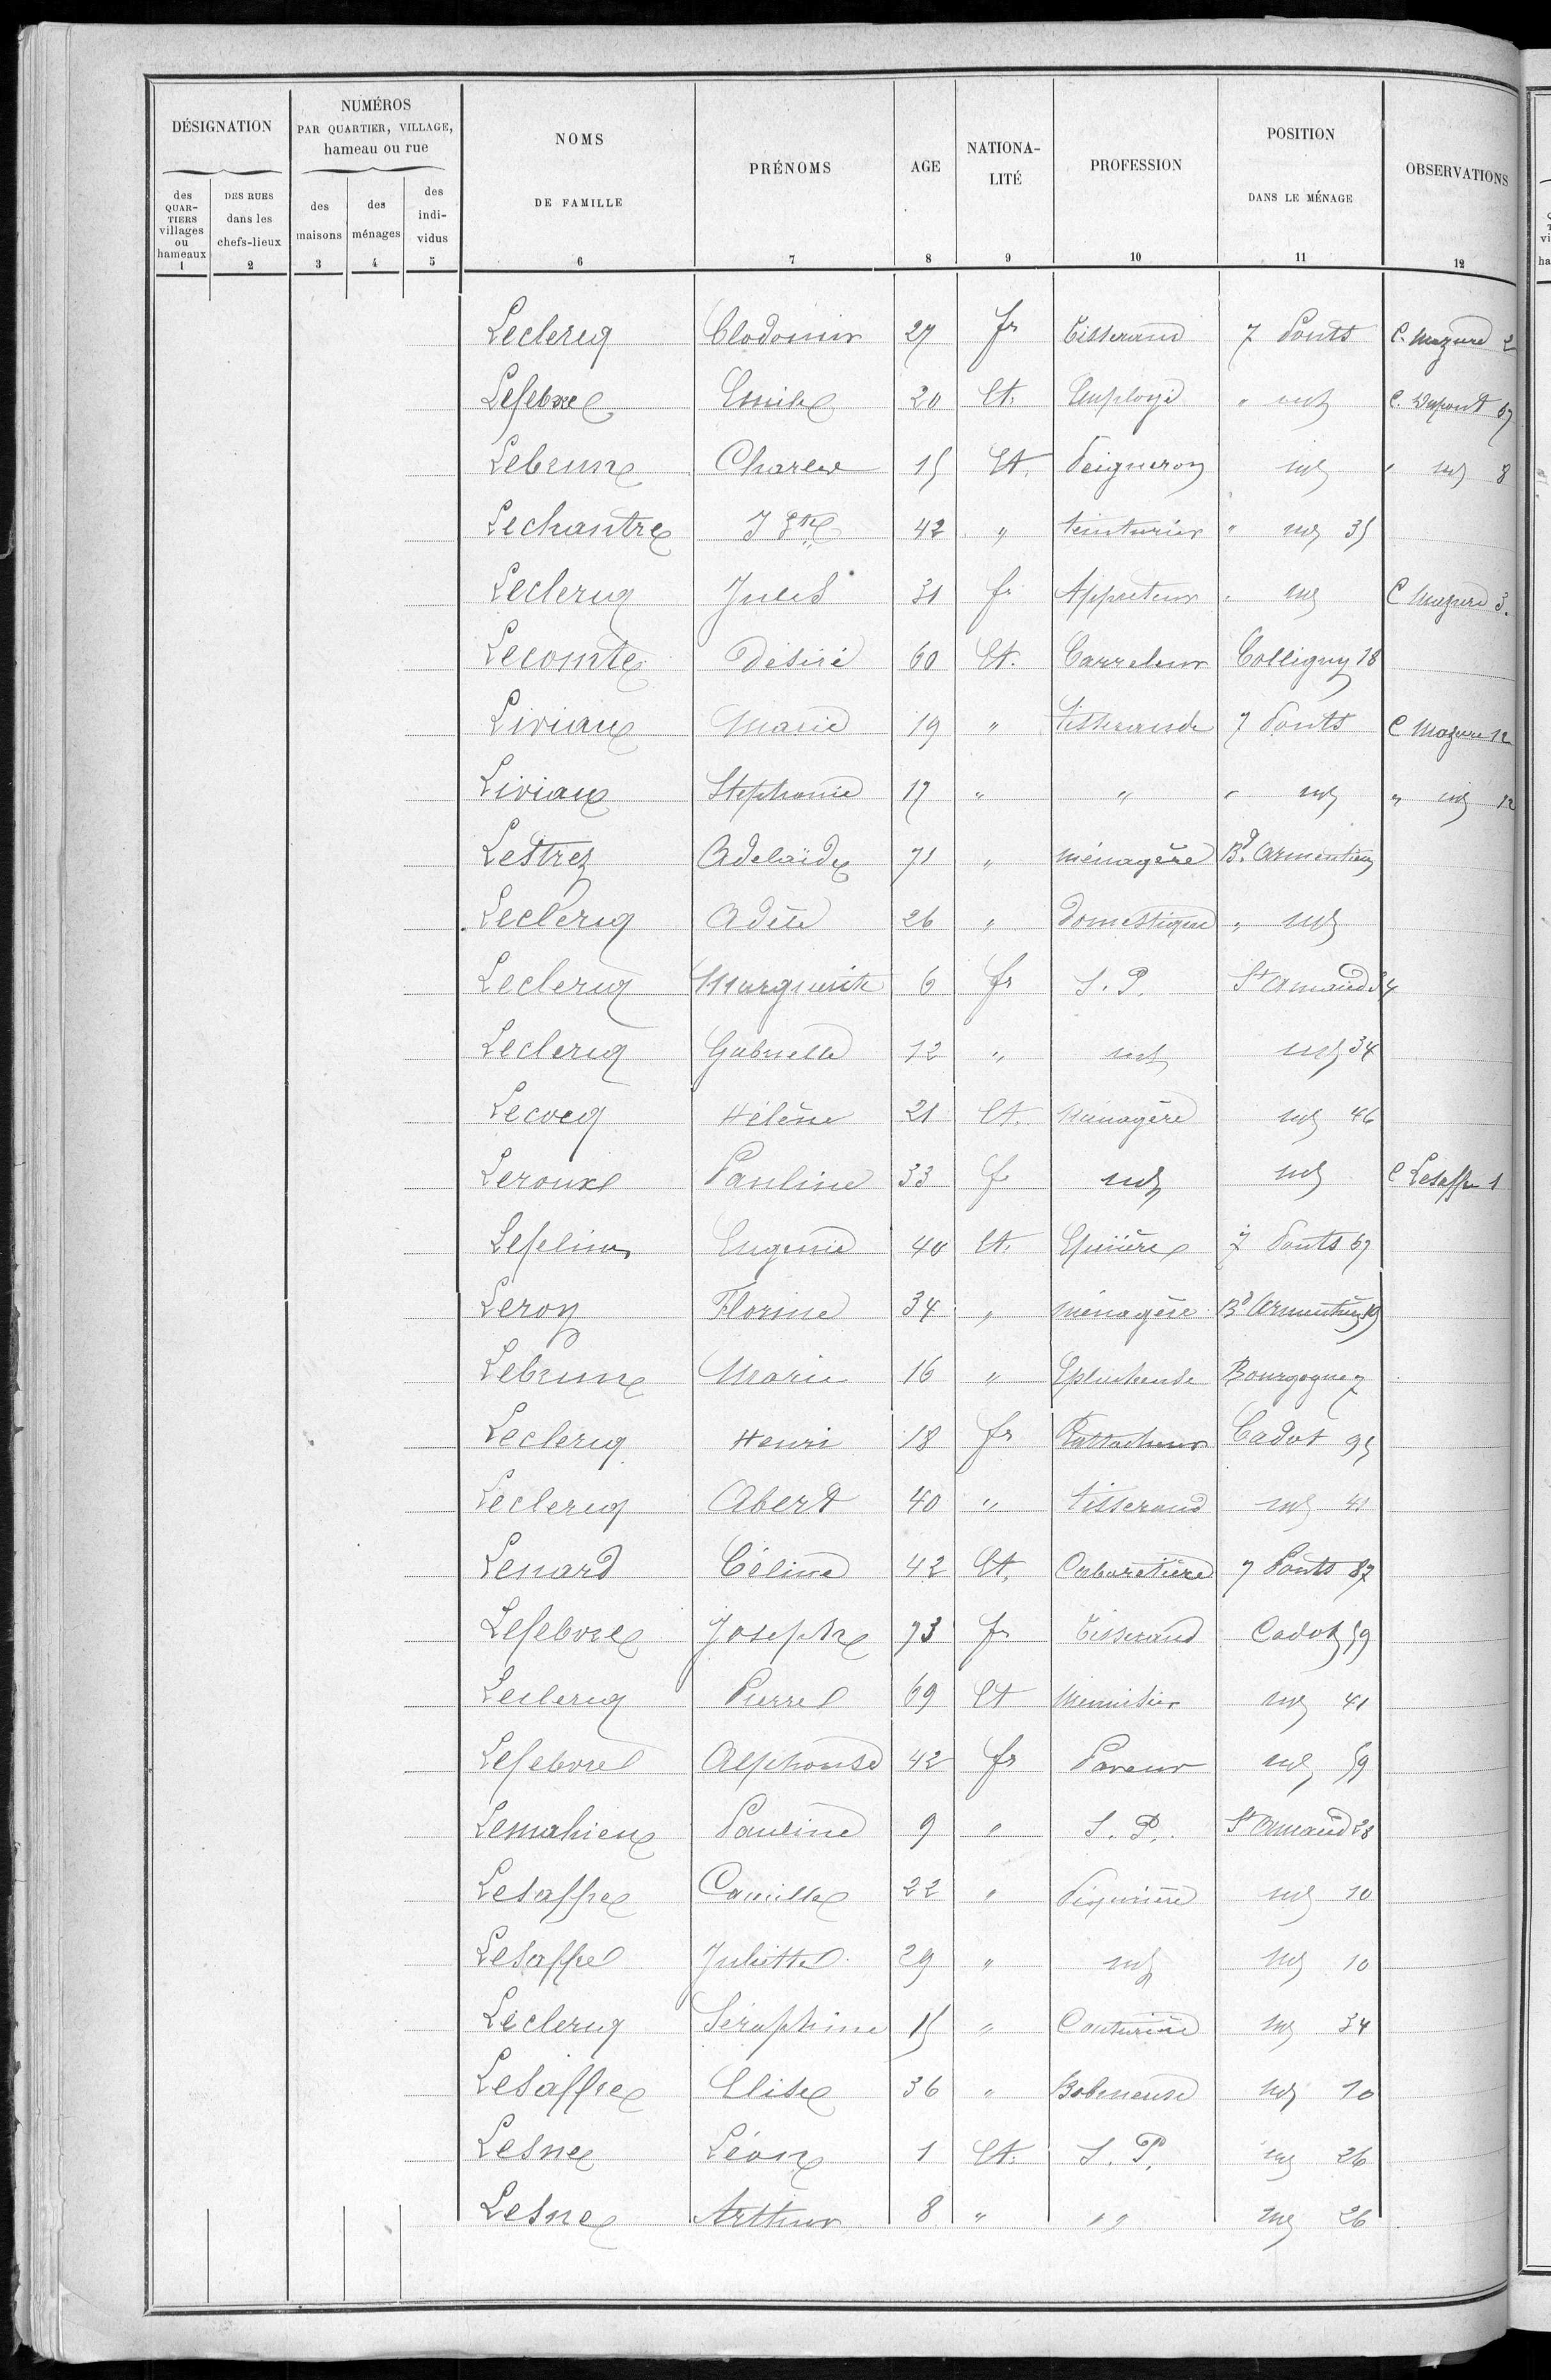 DÉSIGNATION
NUMÉROS
PAR QUARTIER, VILLAGE,
hameau ou rue
NOMS
DE FAMILLE
PRÉNOMS
AGE
NATIONA-
LITÉ
PROFESSION
POSITION
DANS LE MÉNAGE
OBSERVATIONS
des
QUAR-
TIERS
villages
ou
hameaux
DES RUES
dans les
chefs-lieux
des
maisons
des
ménages
des
indi-
vidus
1 2 3 4 5 6 7 8 9 10 11 12
Leclercq Clodomir 27 fr Tisserand 7 Ponts C. Mazure 2
Lefebvre Emile 20 Et. Employé " C. Dupont 67
Lebrun Charles 15 Et. Peigneron " 8
Lechantre J Bte 42 " teinturier " 35
Leclercq Jules 31 fr Appreteur " C Mazure 3.
Lecomte Désiré 60 Et. Carreleur Colligny 18
Liviau Marie 19 " Tisserande 7 Ponts C Mazure 12
Liviau Stephanie 17 " " " " 12
Lestrez Adelaïde 71 " ménagère Bd. Armentières
Leclercq Adèle 26 " domestique "
Leclercq Marguerite 6 fr S. P. St Amand 34
Leclercq Gabrielle 12 " 34
Lecocq Hélène 21 Et. Ménagère 46
Leroux Pauline 33 fr C Lesaffre 1
Lefelin Eugenie 40 Et. Epicière 7 Ponts 67
Leroy Florine 34 " ménagère Bd Armentières 19
Lebrun Marie 16 " Eplucheuse Bourgogne 7
Leclercq Henri 18 fr Rattacheur Cadot 95
Leclercq Abert 40 " Tisserand 41
Lenard Céline 42 Et. Cabaretière 7 Ponts 87
Lefebvre Joseph 73 fr Tisserand Cadot 59
Leclercq Pierre 69 Et Menuisier 41
Lefebvre Alphonse 42 fr Paveur 59
Lemahieu Pauline 9 " S. P. St Amand 28
Lesaffre Camille 22 " Piqurière 10
Lesaffre Juliette 29 " 10
Leclercq Séraphine 15 " Couturière 34
Lesaffre Elise 36 " Bobineuse 10
Lesne Léon 1 Et. S. P. 26
Lesne Arthur 8 " " 26